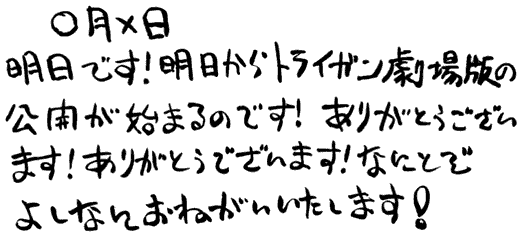 〇月×日
明日です!明日からトライガン劇場版の
公開が始まるのです! ありがとうござい
ます!ありがとうございます!なにとぞ
よしなにおねがいいたします!